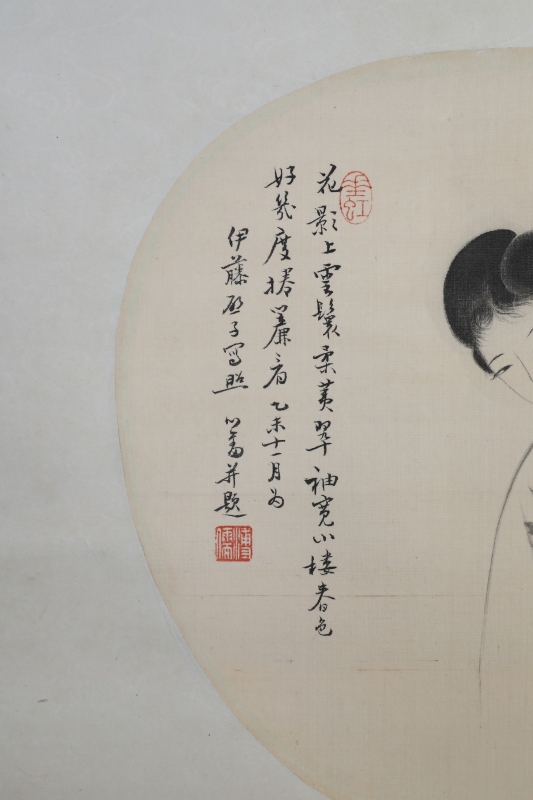 花影上雲鬟柔荑翠袖寬小樓春色
好幾度捲簾看 乙未十一月為
伊藤啟子寫照 心畬并題
溥儒